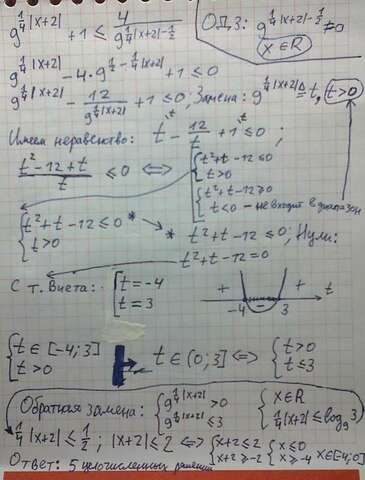 9^{\frac{1}{4}|x+2|} + 1 ≤ \frac{4}{9^{\frac{1}{4}|x+2| - \frac{1}{2}}}
ОДЗ: 9^{\frac{1}{4}|x+2| - \frac{1}{2}} ≠ 0
x ∈ R
9^{\frac{1}{4}|x+2|} - 4·9^{\frac{1}{2} - \frac{1}{4}|x+2|} + 1 ≤ 0
9^{\frac{1}{4}|x+2|} - \frac{12}{9^{\frac{1}{4}|x+2|}} + 1 ≤ 0; Замена: 9^{\frac{1}{4}|x+2|} ≜ t, t > 0
Имеем неравенство: t^{\t} - \frac{12}{t} + 1^{\t} ≤ 0;
\frac{t²-12+t}{t} ≤ 0 ⟺ { t²+t-12 ≤ 0
t > 0
{ t²+t-12 ≥ 0
t < 0 - не входит в диапазон
{ t²+t-12 ≤ 0 *
t > 0
* t²+t-12 ≤ 0; Нули:
t²+t-12=0
С т. Виета: [ t = -4
t = 3
+ - + t
-4 3
{ t ∈ [-4; 3]
t > 0
t ∈ (0; 3] ⟺ { t > 0
t ≤ 3
Обратная замена: { 9^{\frac{1}{4}|x+2|} > 0
9^{\frac{1}{4}|x+2|} ≤ 3
{ x ∈ R
\frac{1}{4}|x+2| ≤ log_9 3
\frac{1}{4}|x+2| ≤ \frac{1}{2}; |x+2| ≤ 2 ⟺ { x+2 ≤ 2
x+2 ≥ -2
{ x ≤ 0
x ≥ -4 x ∈ [-4; 0]
Ответ: 5 целочисленных решений